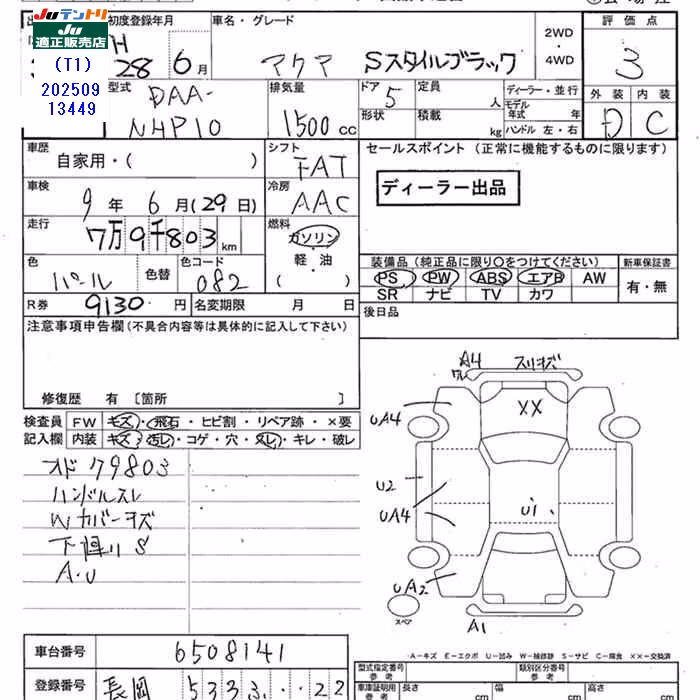 Juテントリ
Ju
適正販売店
(T1)
202509
13449
初度登録年月
H
28 6月
車名・グレード
アクア Sスタイルブラック
2WD
・
4WD
評価点
3
外装 内装
D C
型式
DAA-
NHP10
排気量
1500 cc
ドア 5
定員 人
形状
積載 kg
ディーラー・並行
モデル
年式 年
ハンドル 左・右
車歴
自家用・( )
シフト
FAT
車検
9年 6月(29日)
冷房
AAC
走行
7万9千803 km
燃料
ガソリン
軽・油
( )
色
パール
色替
色コード
082
R券 9130 円
名変期限 月 日
セールスポイント (正常に機能するものに限ります)
ディーラー出品
装備品(純正品に限り○をつけてください)
PS PW ABS エアB AW
SR ナビ TV カワ
新車保証書
有・無
後日品
注意事項申告欄(不具合内容等は具体的に記入して下さい)
修復歴 有 〔箇所 〕
検査員
記入欄
FW キズ・飛石・ヒビ割・リペア跡・×要
内装 キズ・汚レ・コゲ・穴・スレ・キレ・破レ
オド79803
ハンドルスレ
Wカバーキズ
下廻りS
A・U
A4 スリキズ
ワレ
XX
UA4
U2
UA4
U1
UA2
スペア
A1
A-キズ E-エクボ U-凹み W-補修跡 S-サビ C-腐食 XX-交換済
車台番号
6508141
登録番号
長岡 533 ふ ・・22
型式指定番号
参考
類別区分番号
参考
車庫証明用
参考
長さ cm
幅 cm
高さ cm